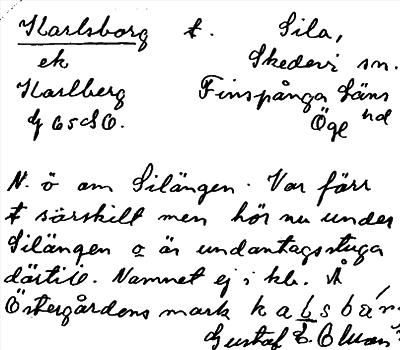 Karlsborg t. Sila,
ek Skedevi sn.
Karlberg Finspånga läns
hd
Ögl
N. ö om Silängen. Var förr
t särskilt men hör nu under
Silängen o är undantagsstuga
därtill. Namnet ej i kb. Å
Östergårdens mark
Gustaf